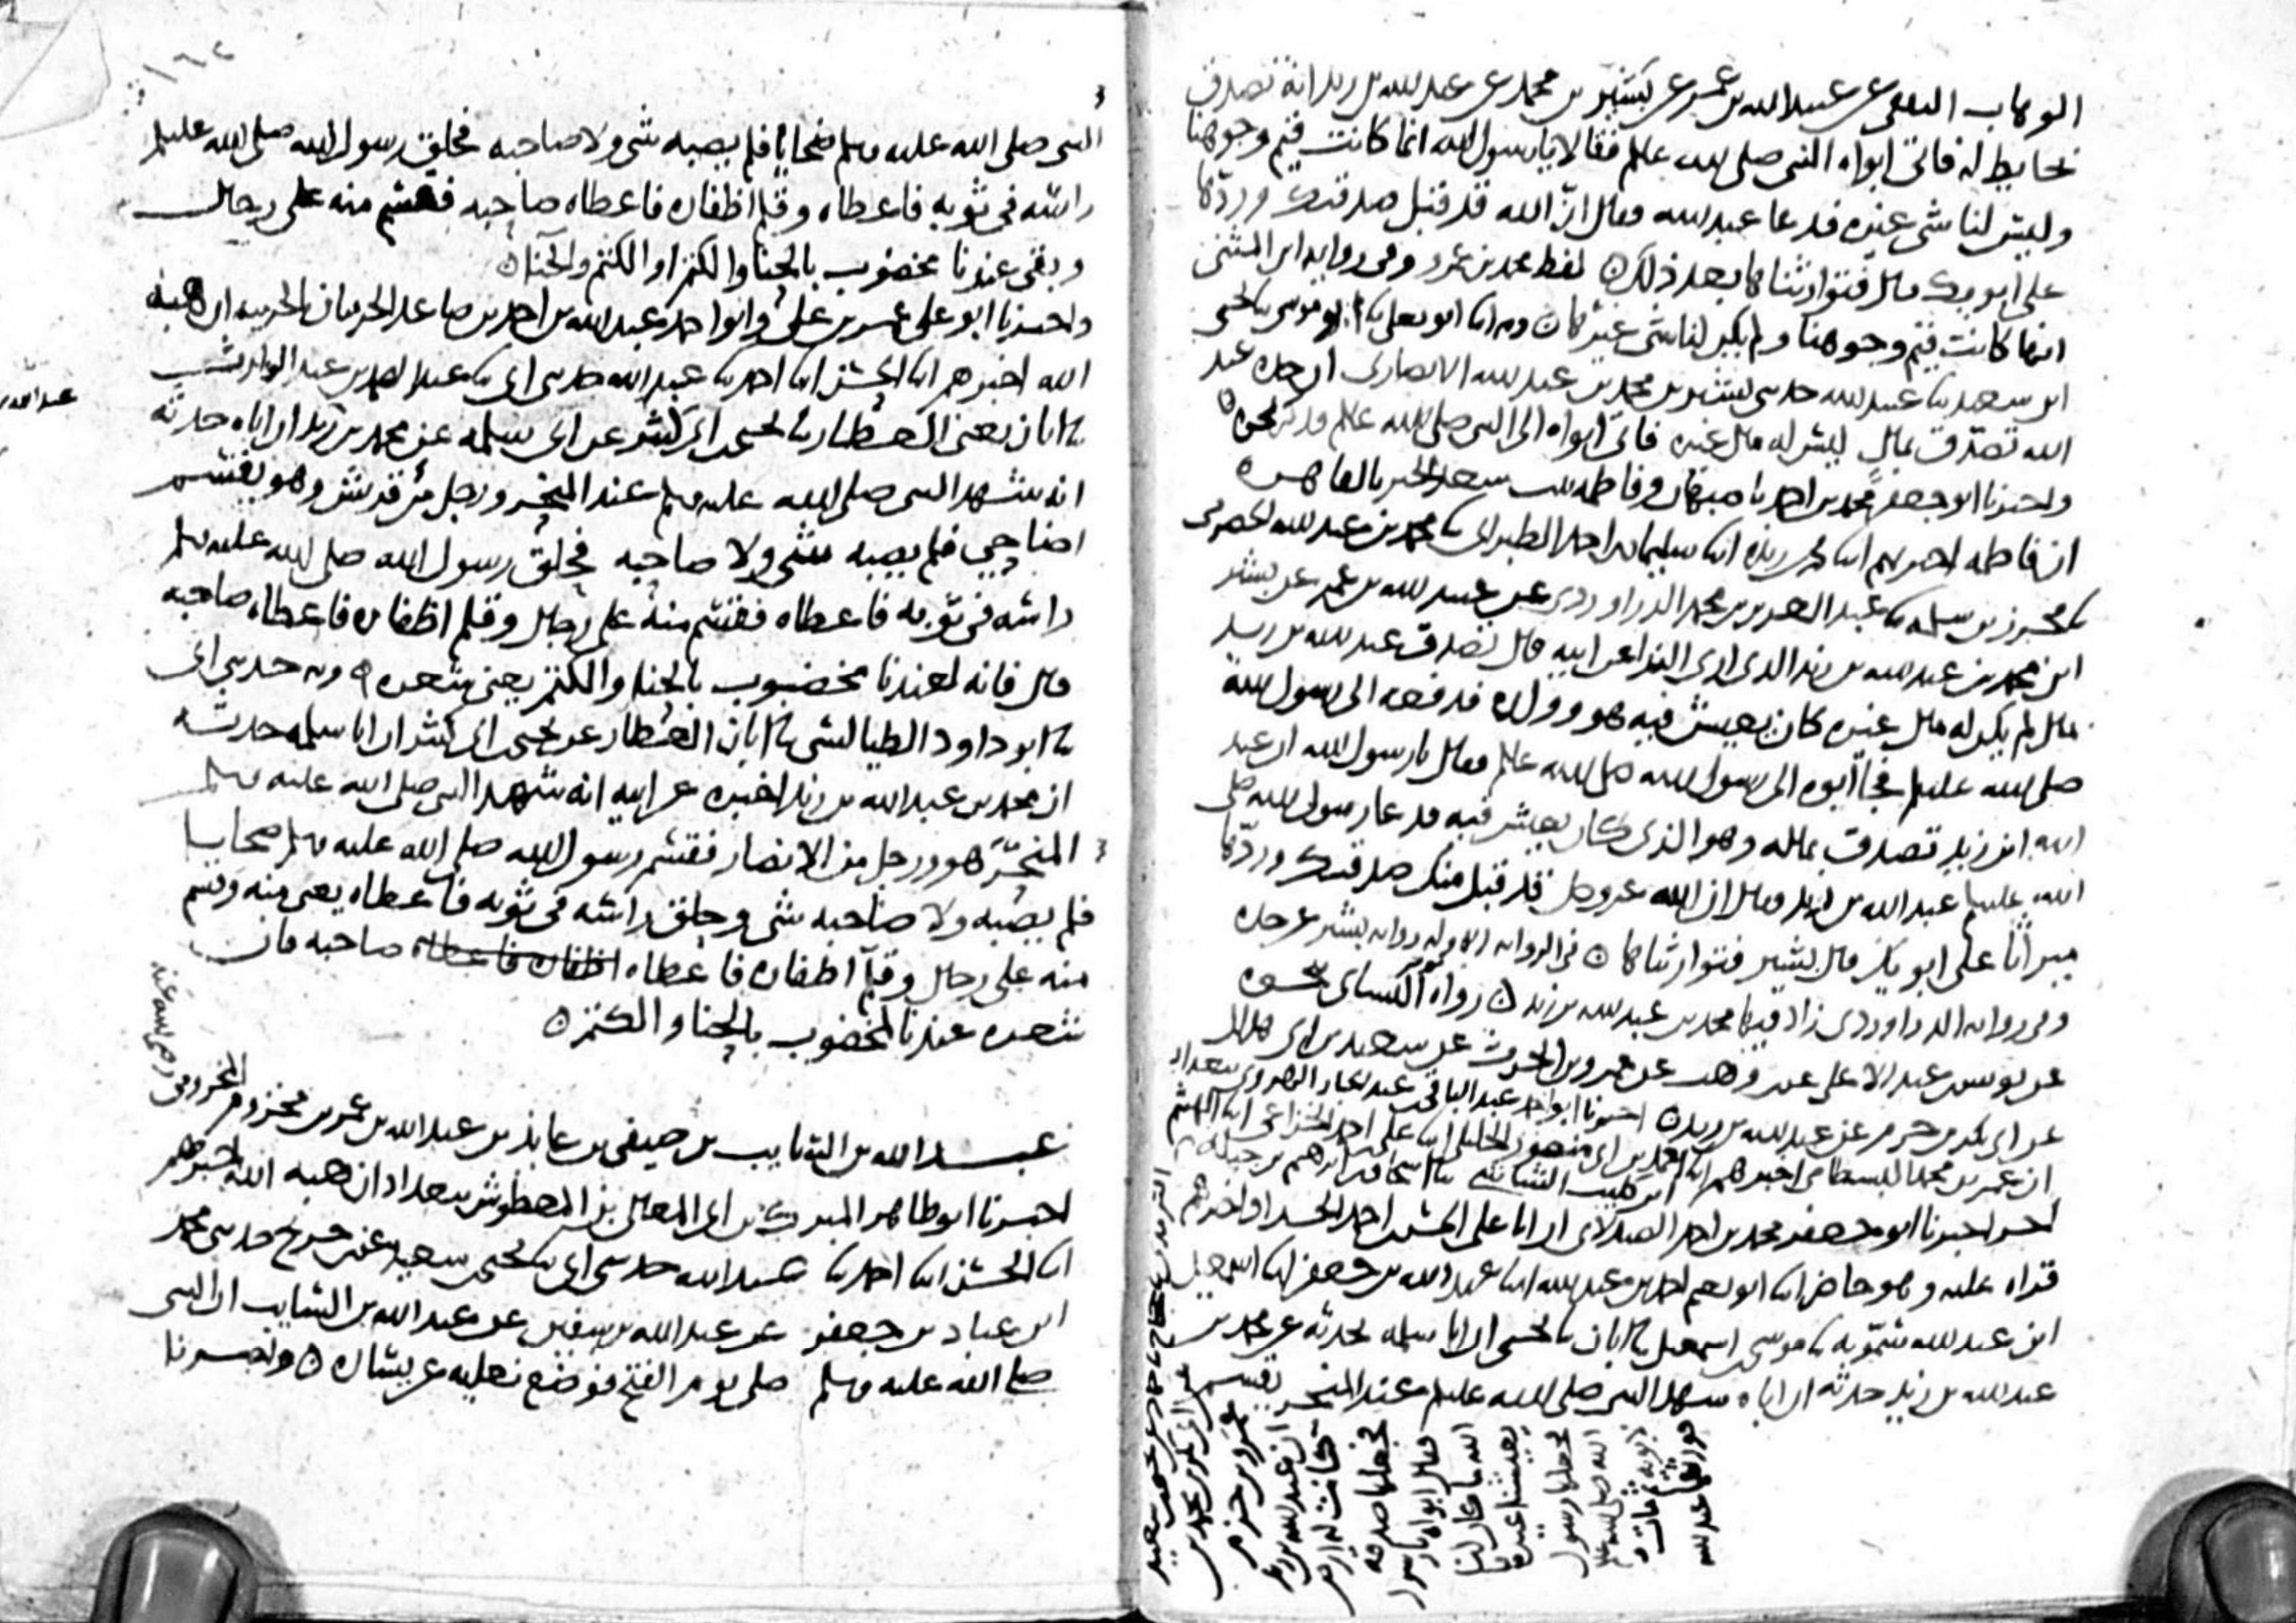 الوهاب الثقفي عن عبيد الله بن عمر عن بشير بن محمد عن عبد الله بن زيد انه تصدق
بحايط له فاتى ابواه النبي صلى الله عليه وسلم فقالا يا رسول الله انما كانت قيم وجوهنا
وليس لنا شي غيره فدعا عبد الله فقال ان الله قد قبل صدقتك وردها
على ابويك قال فتوارثناها بعد ذلك لفظ محمد بن وفي رواية ابن المثنى
انها كانت قيم وجوهنا ولم يكن لنا شي غيرها وبه انا ابو يعلى نا ابو موسى نا يحيى
ابن سعيد نا عبيد الله حدثني بشير بن محمد بن عبد الله الانصاري ان جده عبد
الله تصدق بمال ليس له مال غيره فاتى ابواه الى النبي صلى الله عليه وسلم فذكر نحوه
واخبرنا ابو جعفر محمد بن احمد باصبهان وفاطمة بنت سعد الخير بالقاهرة
ان فاطمة اخبرتهم انا محمد بن ريذه انا سليمان بن احمد الطبراني نا محمد بن عبد الله الحضرمي
نا محرز بن سلمة نا عبد العزيز بن محمد الدراوردي عن عبيد الله بن عمر عن بشير
ابن محمد بن عبد الله بن زيد الذي اري النداء عن ابيه قال تصدق عبد الله بن زيد
بمال لم يكن له مال غيره كان يعيش فيه هو وولده فدفعه الى رسول الله
صلى الله عليه وسلم فجا ابوه الى رسول الله صلى الله عليه وسلم فقال يا رسول الله ان عبد
الله ابن زيد تصدق بماله وهو الذي كان يعيش فيه فدعا رسول الله صلى
الله عليه وسلم عبد الله بن زيد فقال ان الله عز وجل قد قبل منك صدقتك وردها
ميراثا على ابويك قال بشير فتوارثناها في الرواية الاولة رواية بشير عن جده
وفي رواية الدراوردي زاد فيها محمد بن عبد الله بن زيد رواه النسائي بنحوه
عن يونس بن عبد الاعلى عن ابن وهب عن عمرو بن الحرث عن سعيد بن ابي هلال
عن ابي بكر بن حزم عن عبد الله بن زيد اخبرنا ابو احمد عبد الباقي بن عبد الجبار الهروي ببغداد
ان عمر بن محمد البسطامي اخبرهم انا احمد بن ابي منصور الخليلي انا علي بن احمد الخزاعي انا الهيثم
ابن كليب الشاشي نا اسحاق بن ابراهيم بن جبلة
اخر اخبرنا ابو جعفر محمد بن احمد الصيدلاني ان ابا علي الحسن بن احمد الحداد اخبرهم
قراة عليه وهو حاضر انا ابو نعيم احمد بن عبد الله انا عبد الله بن جعفر انا اسمعيل
ابن عبد الله سمويه نا موسى بن اسمعيل نا ابان نا يحيى ان ابا سلمة حدثه عن محمد بن
عبد الله بن زيد حدثه ان اباه شهد النبي صلى الله عليه وسلم عند المنحر يقسم
ابي بكر بن محمد بن
عمرو بن حزم
ان عبد الله بن زيد
كانت له ارض
فجعلها صدقة
فقال ابواه يا رسول
الله ما كان لنا
يعيشنا غيرها
فجعلها رسول
الله صلى الله عليه وسلم
لابويه ثم ماتا
فورثها عبد الله
النبي صلى الله عليه وسلم ضحايا فلم يصبه شي ولا صاحبه فحلق رسول الله صلى الله عليه وسلم
راسه في ثوبه فاعطاه وقلم اظفاره فاعطاه صاحبه فقسم منه على رجال
وبقي عندنا مخضوب بالحنا والكتم او الكتم والحنا
واخبرنا ابو علي عمر بن علي وابو احمد عبد الله بن احمد بن صاعد الحربيان بالحربية ان هبة
الله اخبرهم انا الحسن انا احمد نا عبد الله حدثني ابي نا عبد الصمد بن عبد الوارث
نا ابان يعني العطار نا يحيى بن ابي كثير عن ابي سلمة عن محمد بن عبد الله بن زيد ان اباه حدثه
انه شهد النبي صلى الله عليه وسلم عند المنحر ورجل من قريش وهو يقسم
اضاحي فلم يصبه شي ولا صاحبه فحلق رسول الله صلى الله عليه وسلم
راسه في ثوبه فاعطاه فقسم منه على رجال وقلم اظفاره فاعطاه صاحبه
قال فانه لعندنا مخضوب بالحنا والكتم يعني شعره وبه حدثني ابي
نا ابو داود الطيالسي نا ابان العطار عن يحيى بن ابي كثير ان ابا سلمة حدثه
ان محمد بن عبد الله بن زيد اخبره عن ابيه انه شهد النبي صلى الله عليه وسلم
المنحر هو ورجل من الانصار فقسم رسول الله صلى الله عليه وسلم ضحايا
فلم يصبه ولا صاحبه شي وحلق راسه في ثوبه فاعطاه يعني منه وقسم
منه على رجال وقلم اظفاره فاعطاه اظفاره فاعطاه صاحبه فان
شعره عندنا لمخضوب بالحنا والكتم
عبد الله بن السايب بن صيفي بن عابد بن عبد الله بن عمر بن مخزوم المخزومي رضي الله عنه
اخبرنا ابو طاهر المبارك بن ابي المعالي بن المعطوش ببغداد ان هبة الله اخبرهم
انا الحسن انا احمد نا عبد الله حدثني ابي نا يحيى بن سعيد عن ابن جريج حدثني محمد
ابن عباد بن جعفر عن عبد الله بن سفين عن عبد الله بن السايب ان النبي
صلى الله عليه وسلم صلى يوم الفتح فوضع نعليه عن يساره واخبرنا